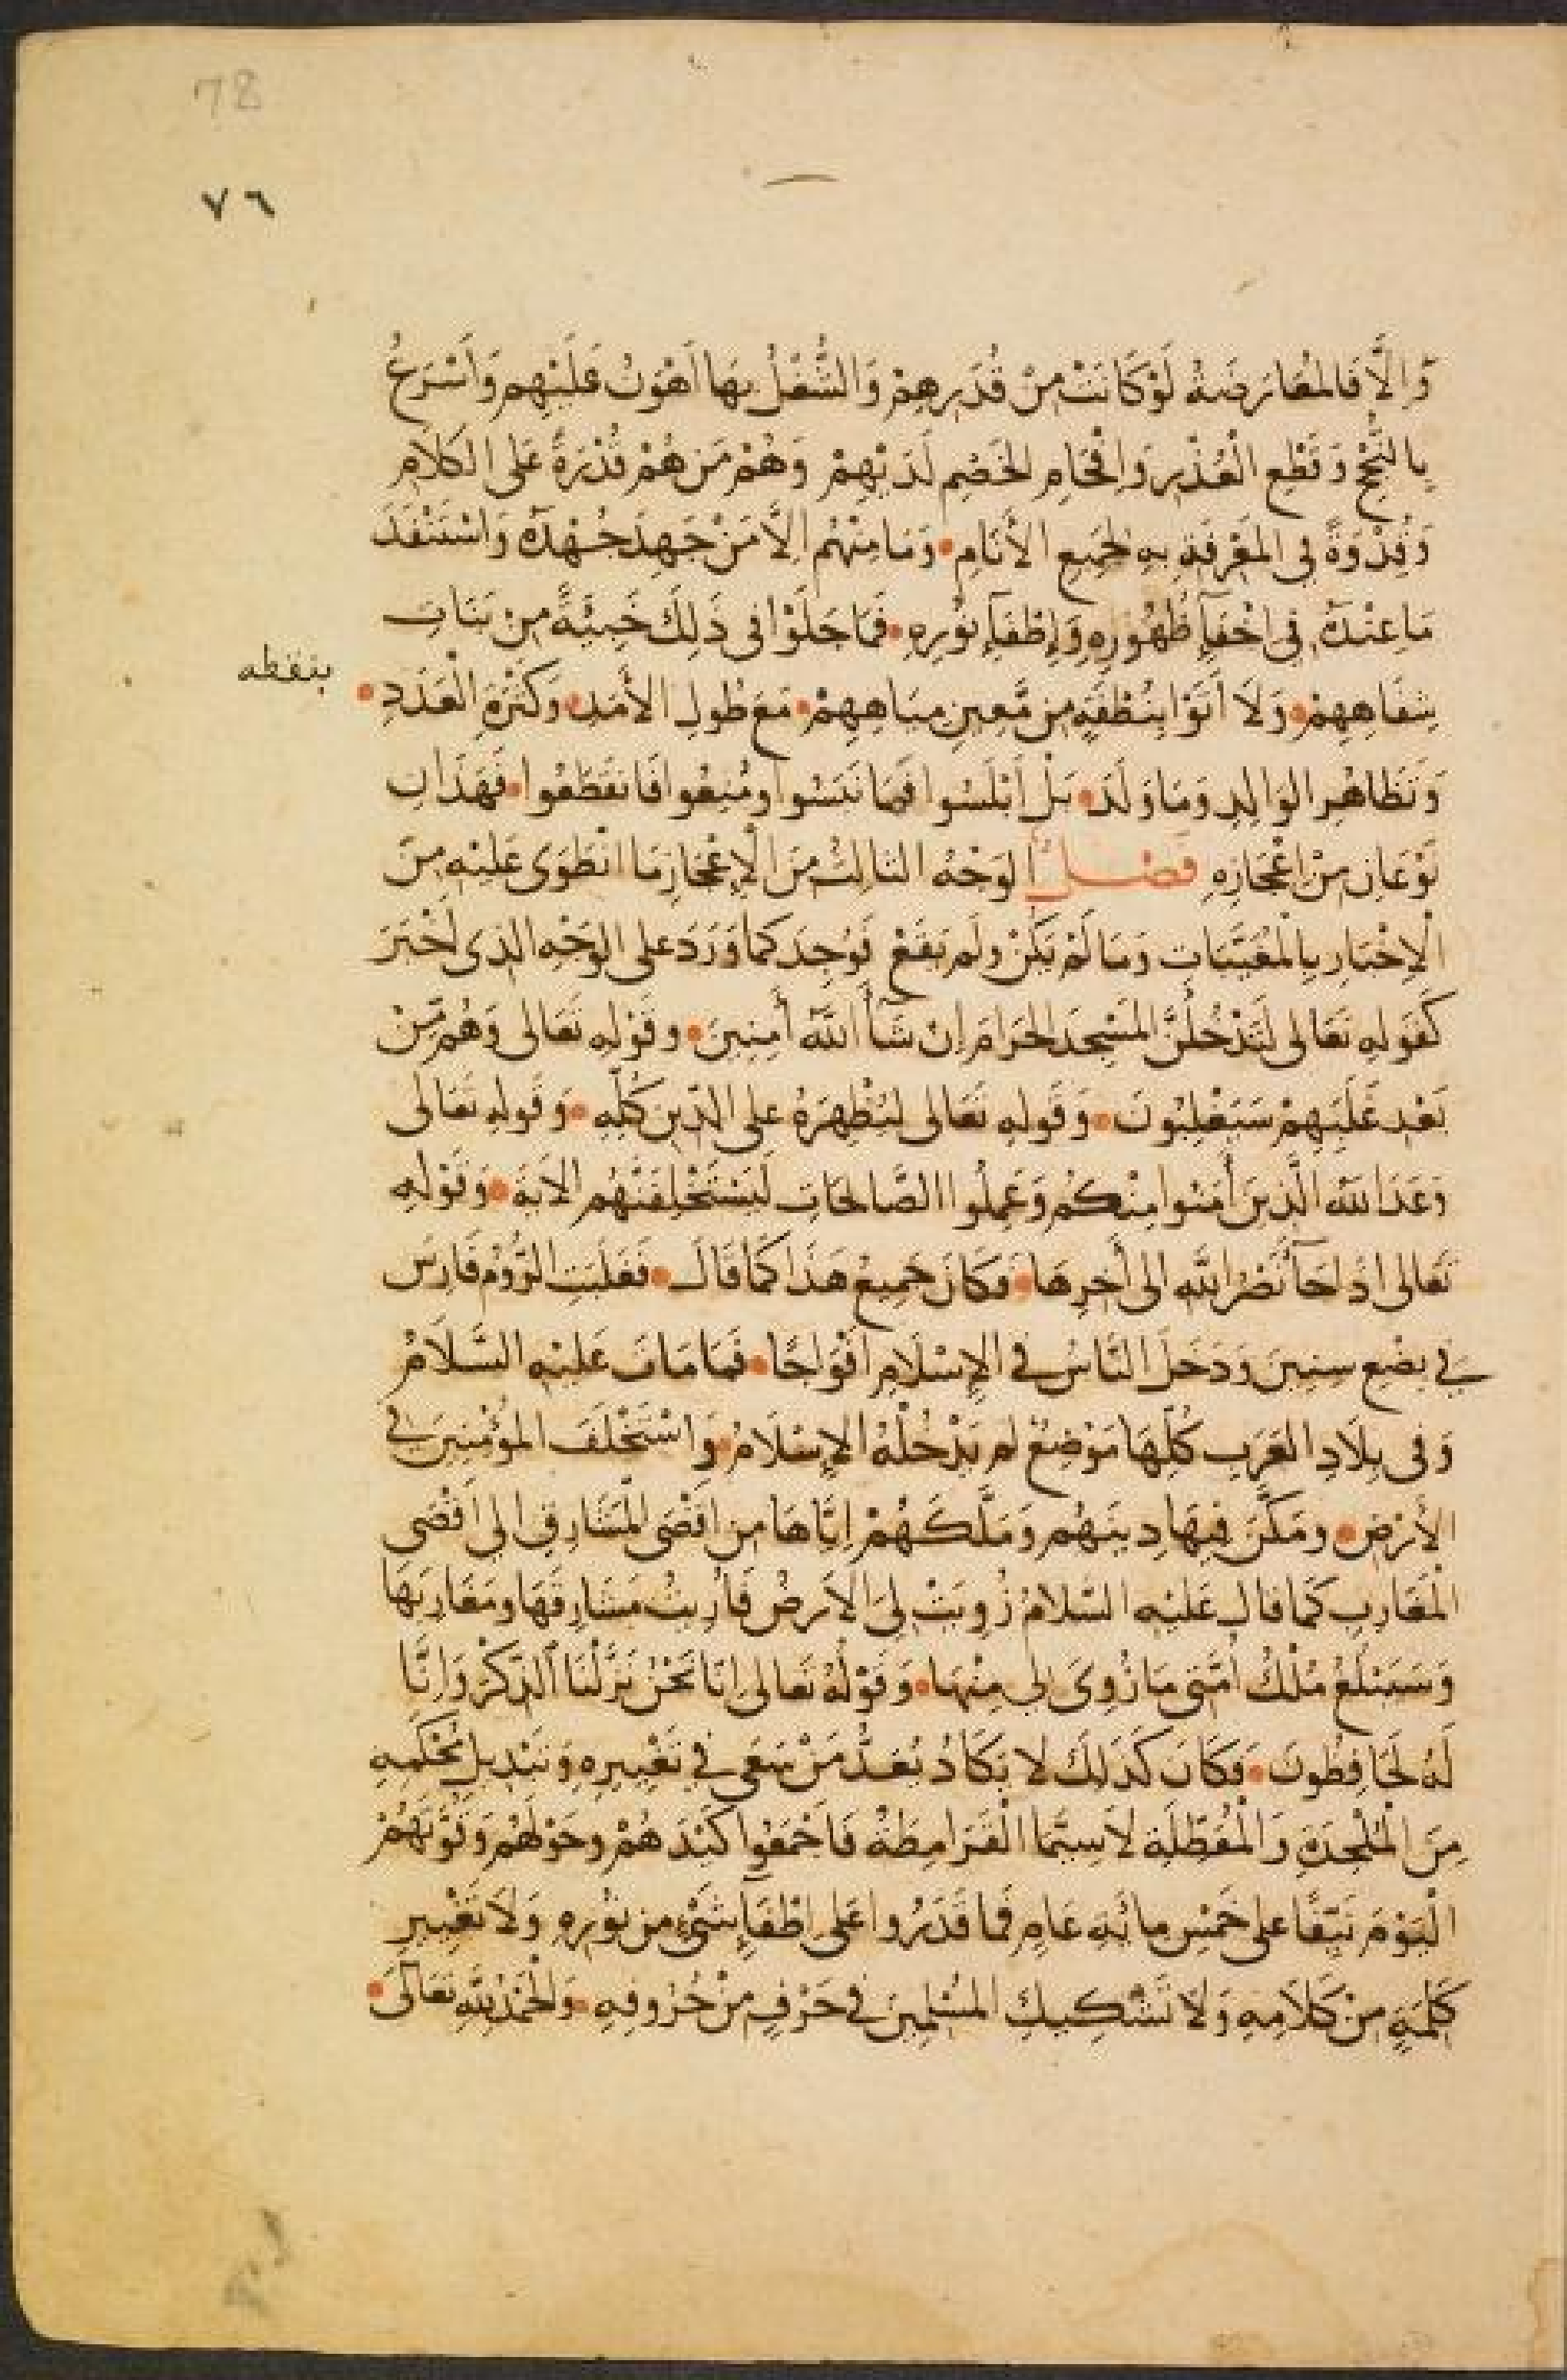 78
٧٦
وَإِلَّا فَالمُعَارَضَةُ لَوْ كَانَتْ مِنْ قُدَرِهِمْ وَالشُّغْلُ بِهَا أَهْوَنُ عَلَيْهِم وَأَسْرَعُ
بِالنُّجْحِ وَقَطْعِ الْعُذْرِ وَإِفْحَامِ الخَصْمِ لَدَيْهِمْ وَهُمْ مَن هُمْ قُدْرَةً عَلى الكَلَامِ
وَقُدْوَةً فِي المَعْرِفَةِ بِهِ لِجَمِيعِ الأَنَامِ وَمَا مِنْهُم إِلَّا مَنْ جَهِدَ جُهْدَهُ وَاسْتَنْفَدَ
مَا عِنْدَهُ فِي إِخْفَآءِ ظُهُورِهِ وَإِطْفَآءِ نُورِهِ فَمَا جَلَوْا فِي ذَلِكَ خَبِيئَةً مِن بَنَاتِ
شِفَاهِهِمْ وَلَا أَتَوْا بِنُطْفَةٍ مِن مَّعِينِ مِيَاهِهِمْ مَعَ طُولِ الأَمَدِ وَكَثْرَةِ الْعَدَدِ
بنقطه
وَتَظَاهُرِ الوَالِدِ وَمَا وَلَدَ بَلْ أَبْلَسُوا فَمَا نَبَسُوا ومُنِعُوا فَانقَطَعُوا فَهَذَانِ
نَوْعَانِ مِنْ إِعْجَازِهِ فَصْلٌ الوَجْهُ الثالِثُ مِنَ الْإِعْجَازِ مَا انْطَوَى عَلَيْهِ مِنَ
الْإِخْبَارِ بِالْمُغَيَّبَاتِ وَمَا لَمْ يَكُنْ وَلَم يَقَعْ فَوُجِدَ كَمَا وَرَدَ عَلى الوَجْهِ الذِي أَخْبَرَ
كَقَولِهِ تَعَالى لَتَدْخُلُنَّ المَسْجِدَ الحَرَامَ إِنْ شَآءَ اللَّهُ آمِنِينَ وَقَوْلِهِ تَعَالى وَهُم مِّنْ
بَعْدِ غَلَبِهِمْ سَيَغْلِبُونَ وَقَولِهِ تَعَالى لِيُظْهِرَهُ عَلى الدِّينِ كُلِّهِ وَقَولِهِ تَعَالى
وَعَدَ اللَّهُ الَّذِينَ آمَنُوا مِنْكُم وَعَمِلُوا الصَّالِحَاتِ لَيَسْتَخْلِفَنَّهُم الآيَةَ وَقَوْلِهِ
تَعَالى إِذَا جَآءَ نَصْرُ اللَّهِ إِلى آخِرِهَا فَكَانَ جَمِيعُ هَذَا كَمَا قَالَ فَغَلَبَتِ الرُّومُ فَارِسَ
فِي بِضْعِ سِنِينَ وَدَخَلَ النَّاسُ فِي الإِسْلَامِ أَفْوَاجًا فَمَا مَاتَ عَلَيْهِ السَّلَامُ
وَفِي بِلَادِ العَرَبِ كُلِّهَا مَوْضِعٌ لَم يَدْخُلْهُ الإِسْلَامُ وَاسْتَخْلَفَ المُؤْمِنِينَ فِي
الأَرْضِ وَمَكَّنَ فِيهَا دِينَهُم وَمَلَّكَهُمْ إِيَّاهَا مِن أَقْصَى الْمَشَارِقِ إِلى أَقْصَى
الْمَغَارِبِ كَمَا قَالَ عَلَيْهِ السَّلَامُ زُوِيَتْ لِيَ الأَرْضُ فَأُرِيتُ مَشَارِقَهَا وَمَغَارِبَهَا
وَسَيَبْلُغُ مُلْكُ أُمَّتِي مَا زُوِيَ لِي مِنْهَا وَقَوْلُهُ تَعَالى إِنَّا نَحْنُ نَزَّلْنَا الذِّكْرَ وَإِنَّا
لَهُ لَحَافِظُونَ فَكَانَ كَذَلِكَ لَا يَكَادُ يُعَدُّ مَنْ سَعَى فِي تَغْيِيرِهِ وَتَبْدِيلِ مُحْكَمِهِ
مِنَ الْمُلْحِدَةِ وَالْمُعَطِّلَةِ لَا سِيَّمَا الْقَرَامِطَةُ فَأَجْمَعُوا كَيْدَهُمْ وَحَوْلَهُمْ وَقُوَّتَهُمْ
الْيَوْمَ نَيِّفًا عَلى خَمْسِ مِائَةِ عَامٍ فَمَا قَدَرُوا عَلى إِطْفَآءِ شَيْءٍ مِن نُورِهِ وَلَا تَغْيِيرِ
كَلِمَةٍ مِنْ كَلَامِهِ وَلَا تَشْكِيكِ المُسْلِمِينَ فِي حَرْفٍ مِنْ حُرُوفِهِ وَالْحَمْدُ لِلَّهِ تَعَالَى